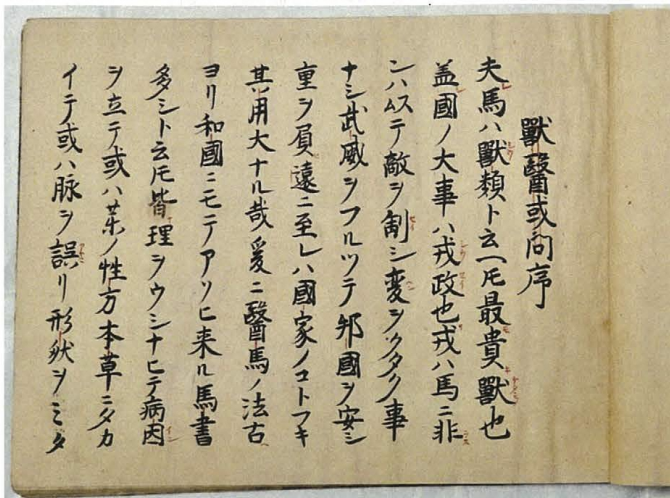 獸醫或問序
夫馬ハ獸類ト云ヘ𪜈最貴獸也
盖國ノ大事ハ戎政也戎ハ馬ニ非
ンハムステ敵ヲ制シ変ヲクタク事
ナシ武威ヲフルツテ邦國ヲ安シ
重ヲ負遠ニ至レハ國家ノコトフキ
其用大ナル哉爰ニ醫馬ノ法古
ヨリ和國ニモテアソヒ来ル馬書
多シト云𪜈皆理ヲウシナヒテ病因
ヲ立テ或ハ茱ノ性方本草ニタカ
イテ或ハ脉ヲ誤リ形状ヲミタ